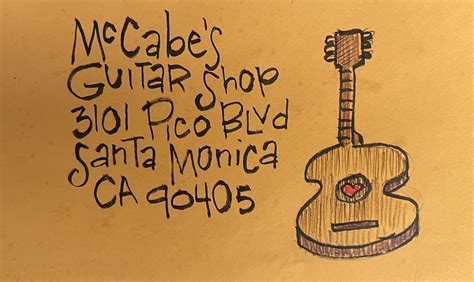 McCabe's
Guitar Shop
3101 Pico Blvd
Santa Monica
CA 90405